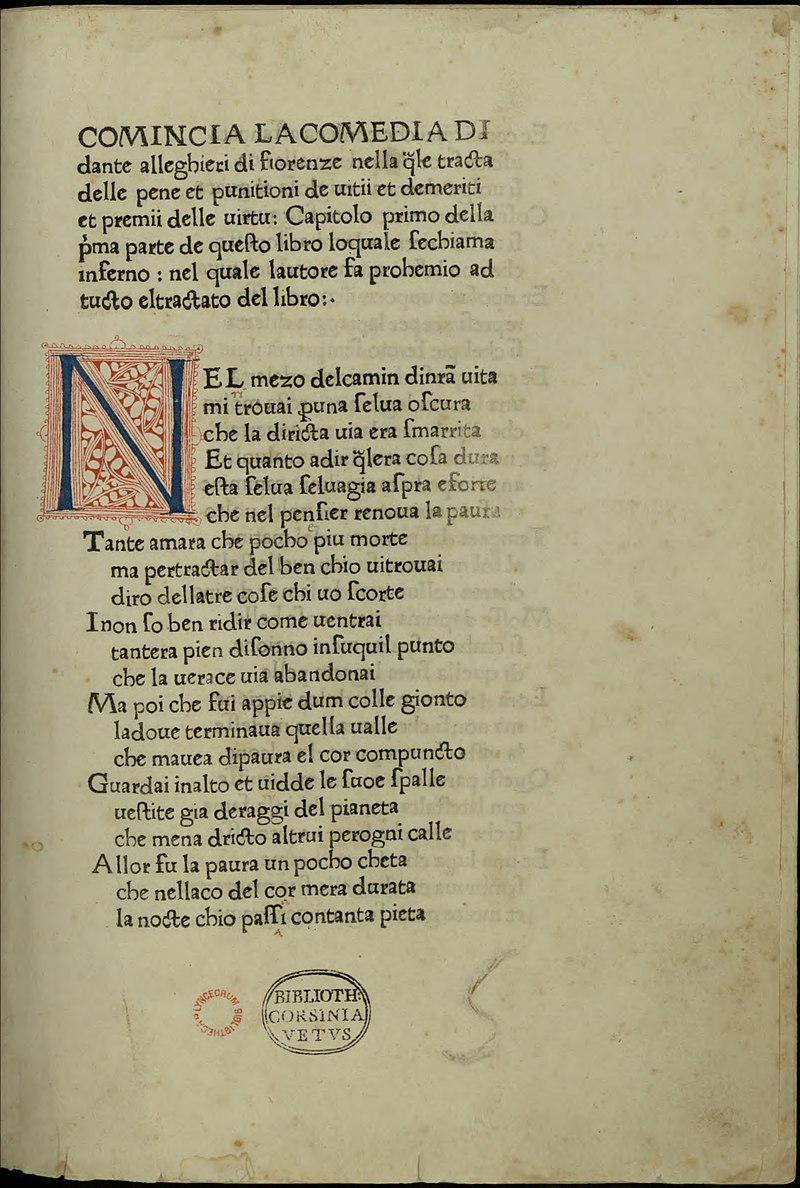 COMINCIA LACOMEDIA DI
dante alleghieri di fiorenze nella q̃le tracta
delle pene et punitioni de uitii et demeriti
et premii delle uirtu: Capitolo primo della
p̃ma parte de queſto libro loquale ſechiama
inferno : nel quale lautore fa prohemio ad
tucto eltractato del libro:·
NEL mezo delcamin dinrã uita
mi trouai ꝑuna ſelua oſcura
che la diricta uia era ſmarrita
Et quanto adir q̃lera coſa dura
eſta ſelua ſeluagia aſpra eforte
che nel penſier renoua la paura
Tante amara che pocho piu morte
ma pertractar del ben chio uitrouai
diro dellatre coſe chi uo ſcorte
I non ſo ben ridir come uentrai
tantera pien diſonno inſuquil punto
che la uerace uia abandonai
Ma poi che fui appie dum colle gionto
ladoue terminaua quella ualle
che mauea dipaura el cor compuncto
Guardai inalto et uidde le ſuoe ſpalle
ueſtite gia deraggi del pianeta
che mena dricto altrui perogni calle
Allor fu la paura un pocho cheta
che nellaco del cor mera durata
la nocte chio paſſi contanta pieta
LYNCEORUM BIBLIOTHECA
BIBLIOTH.
CORSINIA
VETVS